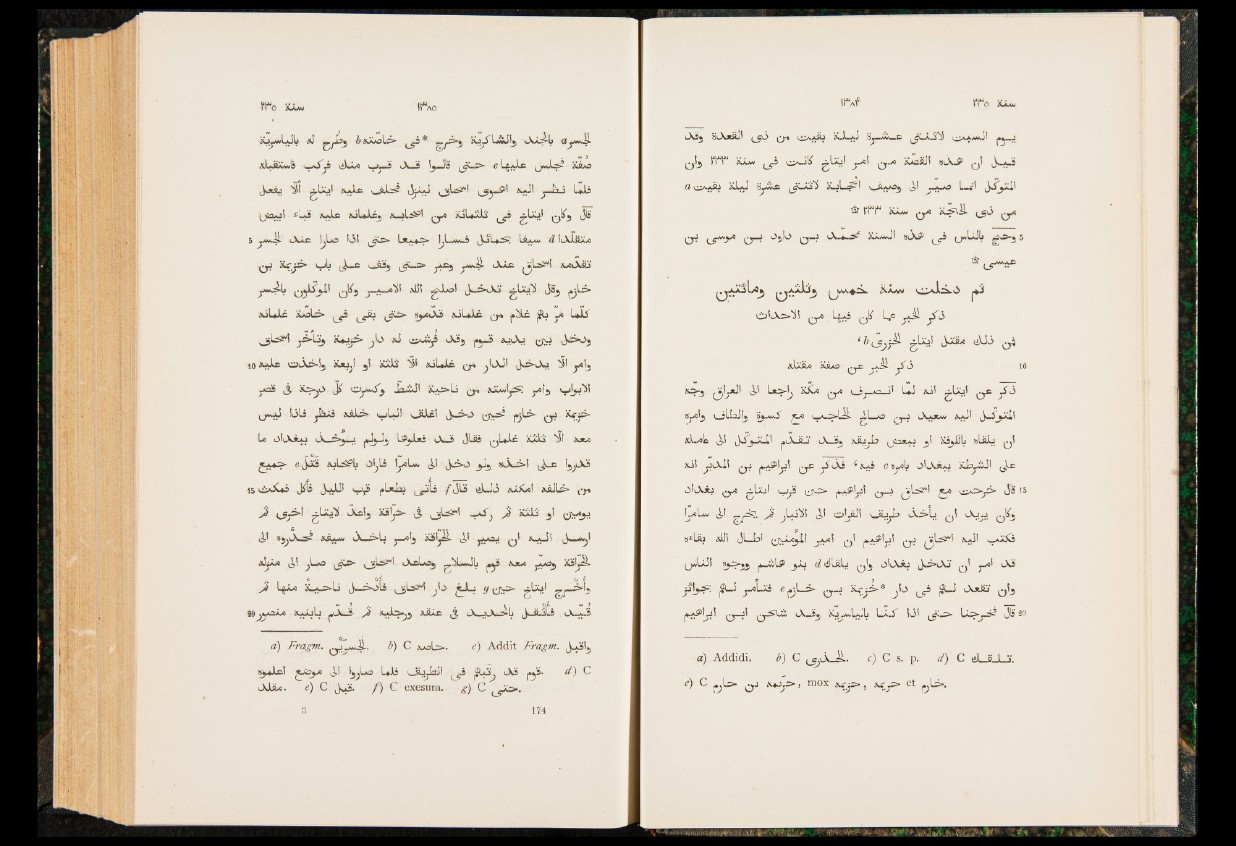 ١٣٨۴ سنة ٢٣٥
يـوم السبت لاثنتى عشرة ليلة بقيت من ذى القعدة وقد
قيل ان هذه القصّة من امر ايتاخ كانت فى سنة ٢٣٣ وان
المتوكّل انما صيّر الى وصيف الحجابة لاثنتى عشرة ليلة بقيت a
من ذى الحجّة من سنة ٢٣٣ ۞
5 وحجّ بالناس فى هذه السنة محمّد بن داود بن موسى بن
عيسى ۞
ثم دخلت سنة خمس وثلثين ومائتين
ذكر الخبر عما كان فيها من الاحداث
فمن ذلك مقتل ايتاخ الخزرىّ b،
10 ذكر الخبر عن صفة مقتله
ذكر عن ايتاخ انه لمّا انصرف من مكّة راجعا الى العراق وجّه
المتوكّل اليه سعيد بن صالح الحاجب مع كسوة والطاف وامره
ان يلقاه بالكوفة او ببعض طريقه وقد تقدّم المتوكّل الى عامله
على الشرطة ببغداد بامره c فيه، فذكر عن ابراهيم بن المدبّر انه
15 قال خرجت مع اسحاق بن ابراهيم حين قرب ايتاخ من بغداد
وكان يريد ان يأخذ طريق الفرات الى الانبار ثم يخرج الى سامرّا
فكتب اليه اسحاق بن ابراهيم ان امير المؤمنين اطال الله بقاءه
قد امر ان تدخل بغداد وان يلقاك d بنو هاشم ووجوه الناس
وان تقعد لهم فى دار *خزيمة بن خازم e فتأمر لهم بجوائز
20 قال فخرجنا حتى اذا كنّا بالياسريّة وقد شحن ابن ابراهيم
a) Addidi. b) C الخذرى. c) C s. p. d) C تلقك.
e) C حازم بن , mox حزيمه, حريمه et حازم.
سنة ٢٣٥ ١٣٨٥
الجسر a بالجند والشاكريّة وخرج *فى خاصّته b وطرح له بالياسريّة
صُفّة فجلس عليها c حتى قالوا قد قرب منك فركب فاستقبله
فلمّا نظر اليه اهوى اسحاق لينزل فحلف عليه ايتاخ ألّا يفعل
قال وكان ايتاخ فى ثلثمائة من اصحابه وغلمانه عليه قباء ابيض
5 متقلّدا d سيفا بحمائل فسارا جميعا حتى اذا صارا عند الجسر
تقدّمه اسحاق عند الجسر وعبر حتى وقف على باب خزيمة بن
خازم وقال لايتاخ تدخل اصلح الله الامير وكان الموكّلون بالجسر
كلّما مرّ بهم غلام من غلمانه قدّموه حتى بقى فى خاصّة غلمانه
ودخل بين يديه قوم وقد فرشت له دار خزيمة وتأخّر اسحاق
10 وامر ألّا يدخل الدار من غلمانه الّا ثلثة او اربعة واخذت عليه
الابواب وامر بحراسته من ناحية الشطّ وكسرت كلّ درجة فى قصر
خزيمة بن خازم فحين دخل اغلق الباب خلفه فنظر فاذا ليس
معه الّا ثلثة غلمان فقال قد فعلوها ولو لم يؤخذ ببغداد ما
قدروا على اخذه ولو دخل الى سامرّا فاراد باصحابه قتْل e جميع
15 من خالفه امكنه ذلك قال f فأتى بطعام قرب الليل فأكل فمكث
يومين او ثلثة ثم ركب اسحاق فى حرّاقة واعدّ لايتاخ اخرى ثم
ارسل اليه ان يصير الى الحرّاقة وامر بأخذ سيفه فحدروه الى
الحرّاقة وصيّر معه قوم بالسلاح وصاعد اسحاق حتى صار الى منزله
وأخرج ايتاخ حين g بلغ دار اسحاق فأدخل ناحية منها ثم
20 قُيّد فأثقل بالحديد فى عنقه ورجليه ثم قُدّم بابنيه منصور
a) Fragm. الجسرَيْن. b) C حاصه. c) Addit Fragm. واقبل
قوم قد رتّبهم فى الطريق فلما صاروا الى موضع اعلموه. d) C
مقلد. e) C قبل. f) C exesum. g) C حتى.
174